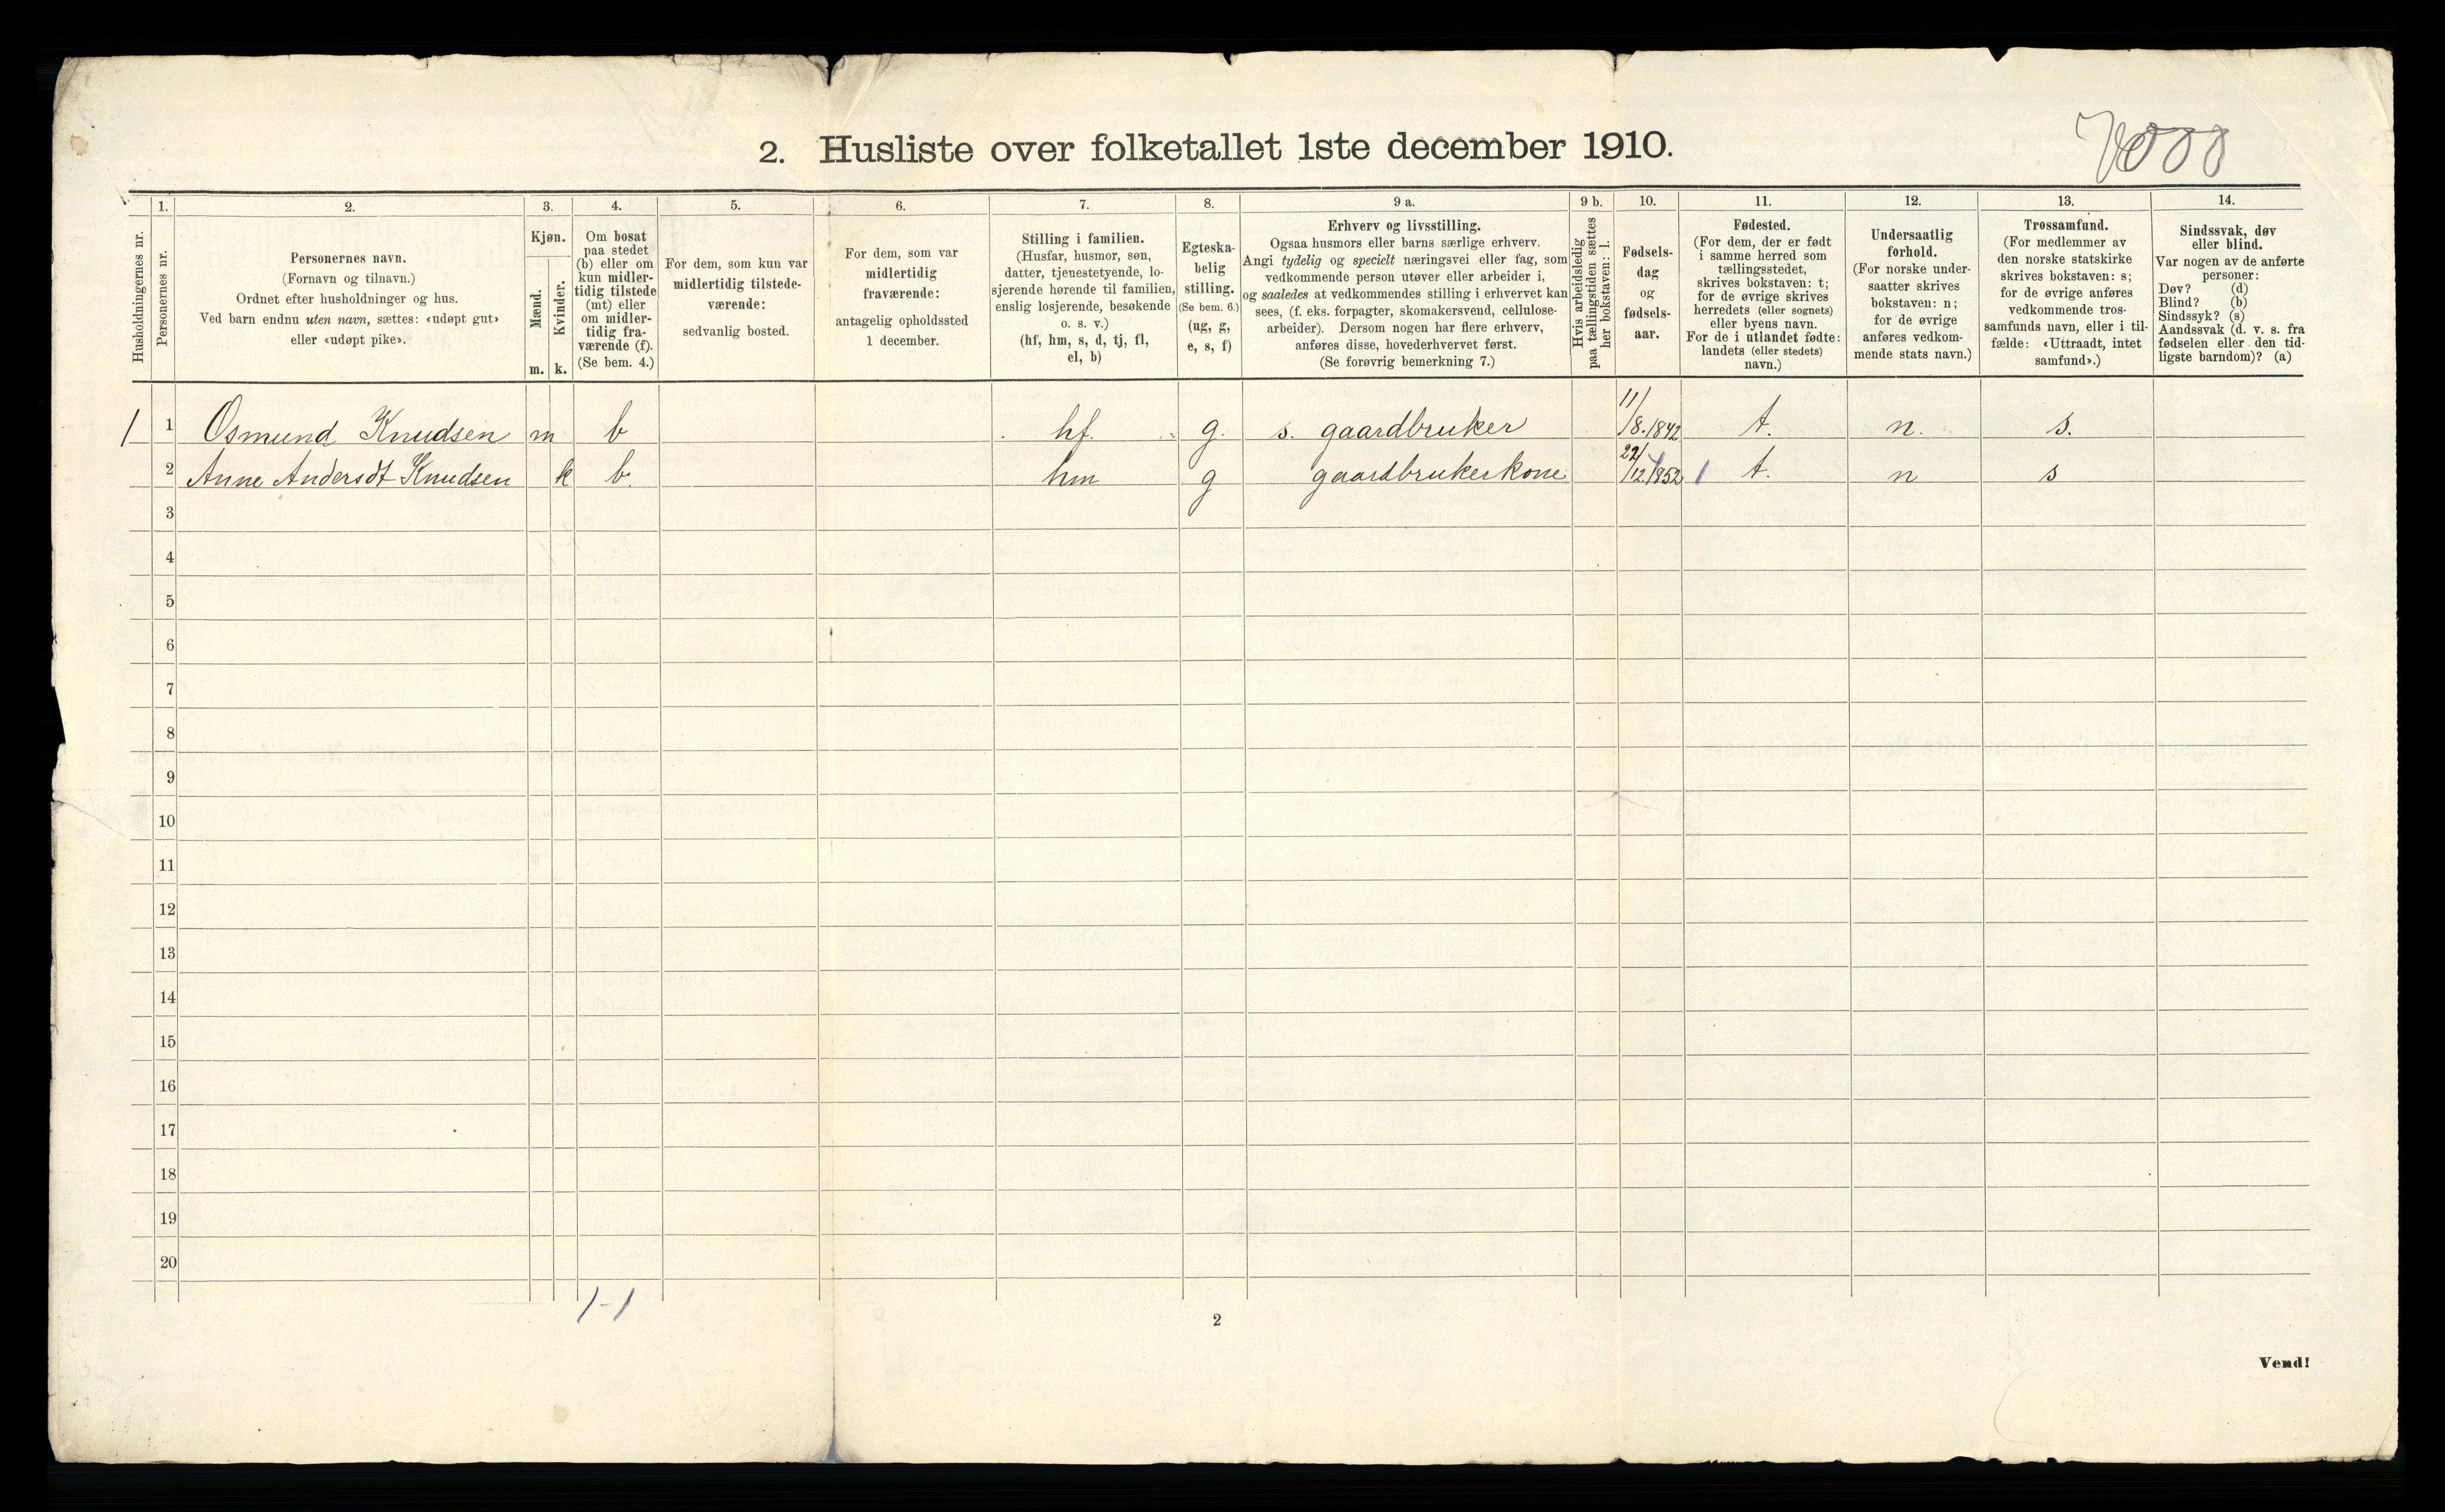 2. Husliste over folketallet 1ste december 1910.
Husholdningernes nr.
1.
Personernes nr.
2.
Personernes navn.
(Fornavn og tilnavn.)
Ordnet efter husholdninger og hus.
Ved barn endnu uten navn, sættes: «udøpt gut»
eller «udøpt pike».
3.
Kjøn.
Mænd.
Kvinder.
m. k.
4.
Om bosat
paa stedet
(b) eller om
kun midler-
tidig tilstede
(mt) eller
om midler-
tidig fra-
værende (f).
(Se bem. 4.)
5.
For dem, som kun var
midlertidig tilstede-
værende:
sedvanlig bosted.
6.
For dem, som var
midlertidig
fraværende:
antagelig opholdssted
1 december.
7.
Stilling i familien.
(Husfar, husmor, søn,
datter, tjenestetyende, lo-
sjerende hørende til familien,
enslig losjerende, besøkende
o. s. v.)
(hf, hm, s, d, tj, fl,
el, b)
8.
Egteska-
belig
stilling.
(Se bem. 6.)
(ug, g,
e, s, f)
9 a.
Erhverv og livsstilling.
Ogsaa husmors eller barns særlige erhverv.
Angi tydelig og specielt næringsvei eller fag, som
vedkommende person utøver eller arbeider i,
og saaledes at vedkommendes stilling i erhvervet kan
sees, (f. eks. forpagter, skomakersvend, cellulose-
arbeider). Dersom nogen har flere erhverv,
anføres disse, hovederhvervet først.
(Se forøvrig bemerkning 7.)
9 b.
Hvis arbeidsledig
paa tællingstiden sættes
her bokstaven: l.
10.
Fødsels-
dag
og
fødsels-
aar.
11.
Fødested.
(For dem, der er født
i samme herred som
tællingsstedet,
skrives bokstaven: t;
for de øvrige skrives
herredets (eller sognets)
eller byens navn.
For de i utlandet fødte:
landets (eller stedets)
navn.)
12.
Undersaatlig
forhold.
(For norske under-
saatter skrives
bokstaven: n;
for de øvrige
anføres vedkom-
mende stats navn.)
13.
Trossamfund.
(For medlemmer av
den norske statskirke
skrives bokstaven: s;
for de øvrige anføres
vedkommende tros-
samfunds navn, eller i til-
fælde: «Uttraadt, intet
samfund».)
14.
Sindssvak, døv
eller blind.
Var nogen av de anførte
personer:
Døv? (d)
Blind? (b)
Sindssyk? (s)
Aandssvak (d. v. s. fra
fødselen eller den tid-
ligste barndom)? (a)
1 1 Osmund Knudsen m b hf. g. s. gaardbruker 11/8.1842 t. n. s.
2 Anne Andersdt Knudsen k b. hm g gaardbrukerkone 22/12.1852 t. n s
3
4
5
6
7
8
9
10
11
12
13
14
15
16
17
18
19
20
1-1
2
Vend!